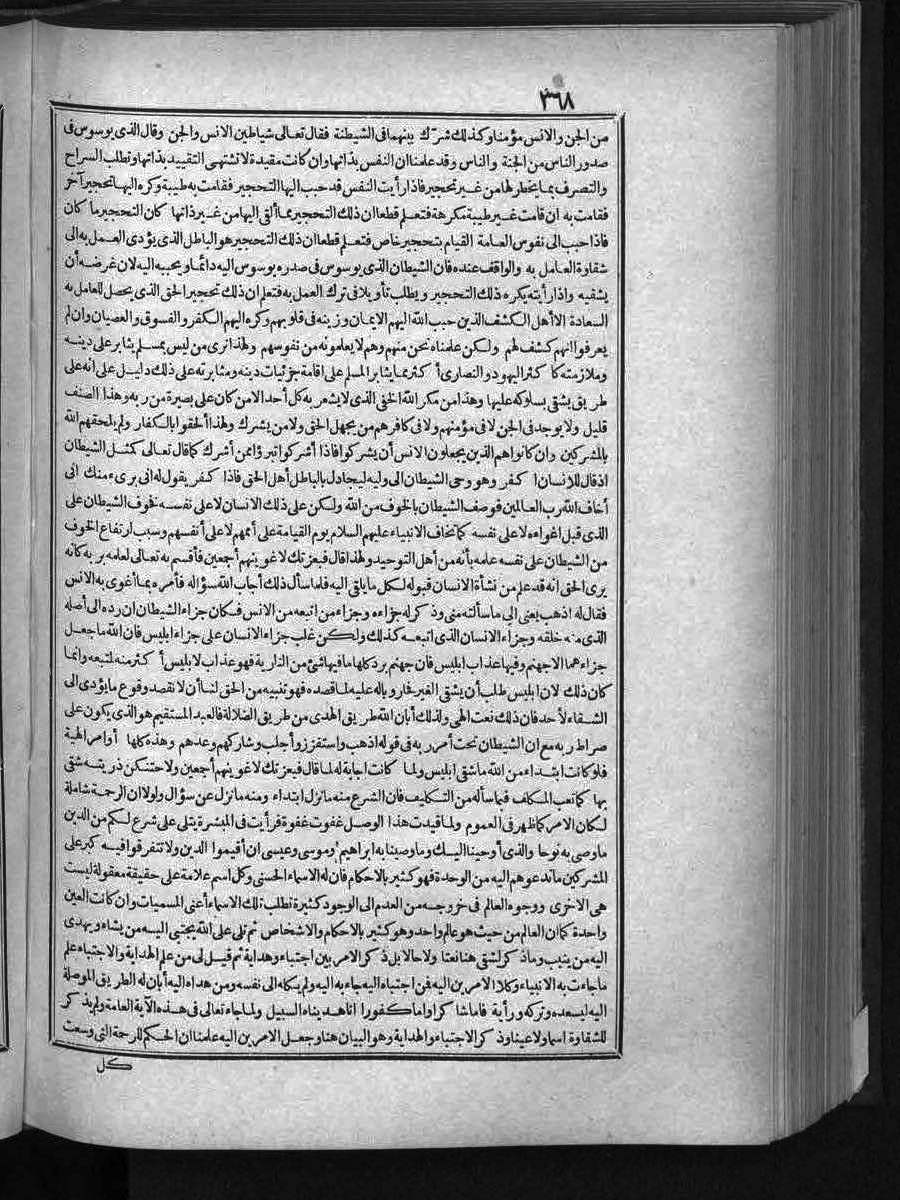 ٣٦٨
من الجن والانس مؤمنا وكذلك شرك بينهما فى الشيطنة فقال تعالى شياطين الانس والجن وقال الذى يوسوس فى
صدور الناس من الجنة والناس وقد علمنا ان النفس بذاتها وان كانت مقيدة لا تشتهى التقييد بذاتها وتطلب السراح
والتصرف بما يخطر لها من غير تحجير فاذا رأيت النفس قد حبب اليها التحجير فقامت به طيبة وكره اليها تحجير آخر
فقامت به ان قامت غير طيبة مكرهة فتعلم قطعا ان ذلك التحجير مما ألقى اليها من غير ذاتها كان التحجير ما كان
فاذا حبب الى نفوس العامة القيام بتحجير خاص فتعلم قطعا ان ذلك التحجير هو الباطل الذى يؤدى العمل به الى
شقاوة العامل به والواقف عنده فان الشيطان الذى يوسوس فى صدره يوسوس اليه دائما ويحببه اليه لان غرضه أن
يشقيه واذا رأيته يكره ذلك التحجير ويطلب تأويلا فى ترك العمل به فتعلم ان ذلك تحجير الحق الذى يحصل للعامل به
السعادة الا أهل الكشف الذين حبب الله اليهم الايمان وزينه فى قلوبهم وكره اليهم الكفر والفسوق والعصيان وان لم
يعرفوا انهم كشف لهم ولكن علمناه نحن منهم وهم لا يعلمونه من نفوسهم ولهذا ترى من ليس بمسلم يثابر على دينه
وملازمته كأكثر اليهود والنصارى أكثر مما يثابر المسلم على اقامة جزئيات دينه ومثابرته على ذلك دليل على انه على
طريق يشقى بسلوكه عليها وهذا من مكر الله الخفى الذى لا يشعر به كل أحد الا من كان على بصيرة من ربه وهذا الصنف
قليل ولا يوجد فى الجن لا فى مؤمنهم ولا فى كافرهم من يجهل الحق ولا من يشرك ولهذا ألحقوا بالكفار ولم يلحقهم الله
بالمشركين وان كانوا هم الذين يجعلون الانس أن يشركوا فاذا أشركوا تبرؤا ممن أشرك كما قال تعالى كمثل الشيطان
اذ قال للانسان اكفر وهو وحى الشيطان الى وليه ليجادل بالباطل أهل الحق فاذا كفر يقول له انى برىء منك انى
أخاف الله رب العالمين فوصف الشيطان بالخوف من الله ولكن على ذلك الانسان لا على نفسه فخوف الشيطان على
الذى قبل اغواءه لا على نفسه كما تخاف الانبياء عليهم السلام يوم القيامة على أممهم لا على أنفسهم وسبب ارتفاع الخوف
من الشيطان على نفسه علمه بأنه من أهل التوحيد ولهذا قال فبعزتك لاغوينهم أجمعين فأقسم به تعالى لعلمه بربه كأنه
يرى الحق انه قد علم من نشأة الانسان قبوله لكل ما يلقى اليه فلما سأل ذلك أجاب الله سؤاله فأمره بما أغوى به الانس
فقال له اذهب يعنى الى ما سألته منى وذكر له جزاءه وجزاء من اتبعه من الانس فكان جزاء الشيطان ان رده الى أصله
الذى منه خلقه وجزاء الانسان الذى اتبعه كذلك ولكن غلب جزاء الانسان على جزاء ابليس فان الله ما جعل
جزاءهما الا جهنم وفيها عذاب ابليس فان جهنم برد كلها ما فيها شئ من النارية فهو عذاب لابليس أكثر منه لمتبعه وانما
كان ذلك لان ابليس طلب أن يشقى الغير فحار وباله عليه لما قصده فهو تنبيه من الحق لنا أن لا نقصد وقوع ما يؤدى الى
الشقاء لأحد فان ذلك نعت الهى ولذلك أبان الله طريق الهدى من طريق الضلالة فالعبد المستقيم هو الذى يكون على
صراط ربه مع ان الشيطان تحت أمر ربه فى قوله اذهب واستفزز وأجلب وشاركهم وعدهم وهذه كلها أوامر الهية
فلو كانت ابتداء من الله ما شقى ابليس ولما كانت اجابة له لما قال فبعزتك لاغوينهم أجمعين ولاحتنكن ذريته شقى
بها كما تعب المكلف فيما سأله من التكليف فان الشرع منه ما نزل ابتداء ومنه ما نزل عن سؤال ولولا ان الرحمة شاملة
لكان الامر كما ظهر فى العموم ولما قيدت هذا الوصل غفوت غفوة فرأيت فى المبشرة يتلى على شرع لكم من الدين
ما وصى به نوحا والذى أوحينا اليك وما وصينا به ابراهيم وموسى وعيسى ان أقيموا الدين ولا تتفرقوا فيه كبر على
المشركين ما تدعوهم اليه من الوحدة فهو كثير بالاحكام فان له الاسماء الحسنى وكل اسم علامة على حقيقة معقولة ليست
هى الاخرى ووجوه العالم فى خروجه من العدم الى الوجود كثيرة تطلب تلك الاسماء أعنى المسميات وان كانت العين
واحدة كما ان العالم من حيث هو عالم واحد وهو كثير بالاحكام والاشخاص ثم تلى على الله يجتبى اليه من يشاء ويهدى
اليه من ينيب وما ذكر لشقى هنا نعتا ولا حالا بل ذكر الامر بين اجتباء وهداية ثم قيل لى من علم الهداية والاجتباء علم
ما جاءت به الانبياء وكلا الامرين اليه فمن اجتباه اليه جاء به اليه ولم يكله الى نفسه ومن هداه اليه أبان له الطريق الموصلة
اليه ليسعده وتركه ورأيه فاما شاكرا واما كفورا انا هديناه السبيل ولما جاء تعالى فى هذه الآية العامة ولم يذكر
للشقاوة اسما ولا عينا وذكر الاجتباء والهداية وهو البيان هنا وجعل الامرين اليه علمنا ان الحكم للرحمة التى وسعت
كل